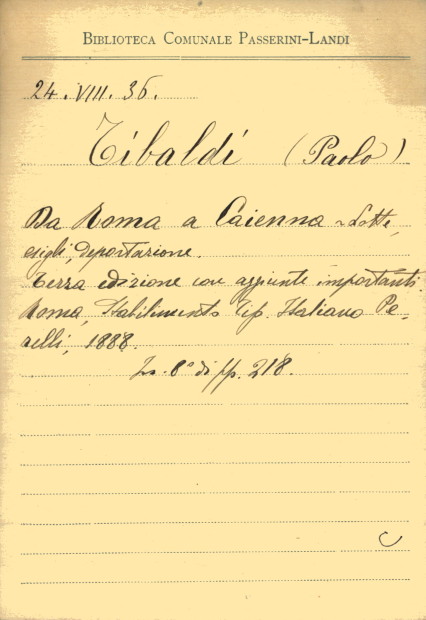 BIBLIOTECA COMUNALE PASSERINI-LANDI
24.VIII.36.
Tibaldi (Paolo)
Da Roma a Caienna - Lotte,
esigli, deportazione.
Terza edizione con aggiunte importanti.
Roma, Stabilimento Tip. Italiano Pe-
relli, 1888.
In 8° di pp. 218.
C